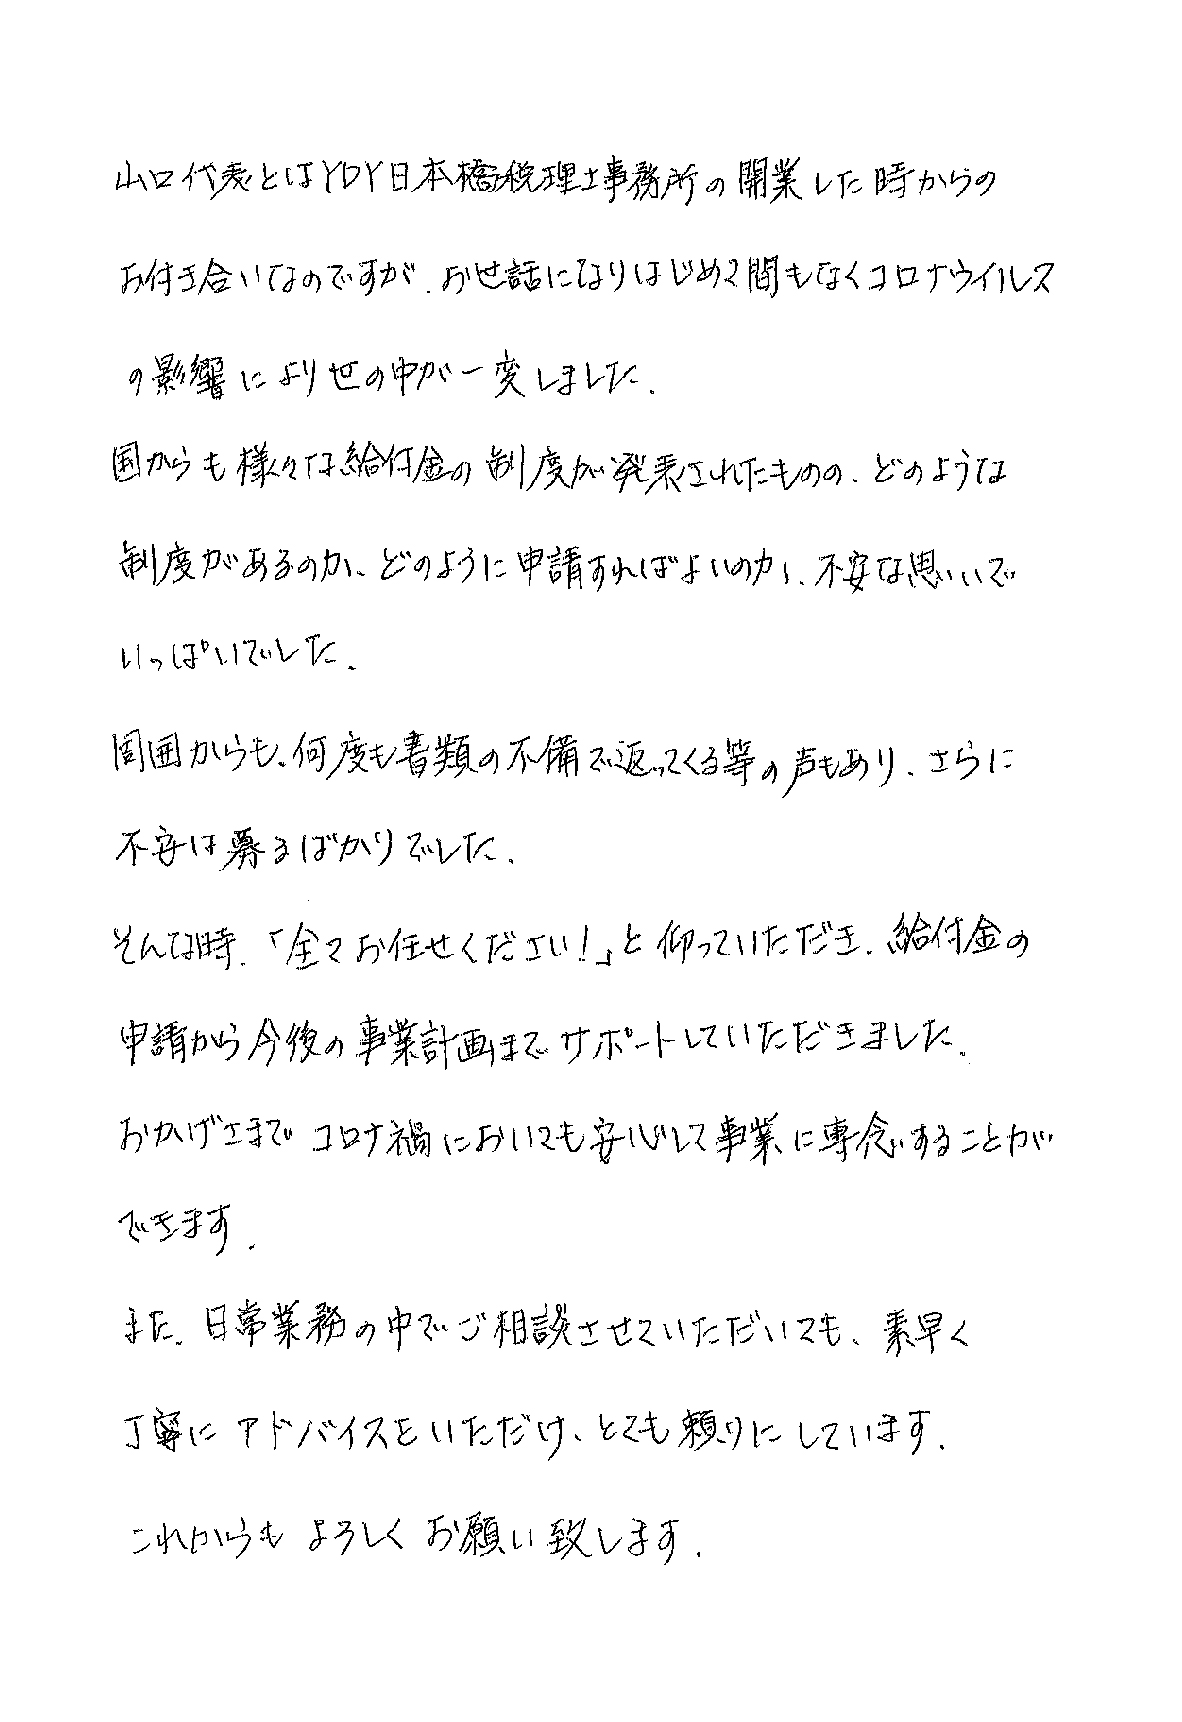 山口代表とはYDY日本橋税理士事務所の開業した時からの
お付き合いなのですが、お世話になりはじめて間もなくコロナウイルス
の影響により世の中が一変しました。
国からも様々な給付金の制度が発表されたものの、どのような
制度があるのか、どのように申請すればよいのか、不安な思いで
いっぱいでした。
周囲からも、何度も書類の不備で返ってくる等の声もあり、さらに
不安は募るばかりでした。
そんな時、「全てお任せください！」と仰っていただき、給付金の
申請から今後の事業計画までサポートしていただきました。
おかげさまで コロナ禍においても安心して事業に専念することが
できます。
また、日常業務の中でご相談させていただいても、素早く
丁寧にアドバイスをいただけ、とても頼りにしています。
これからも よろしく お願い致します。